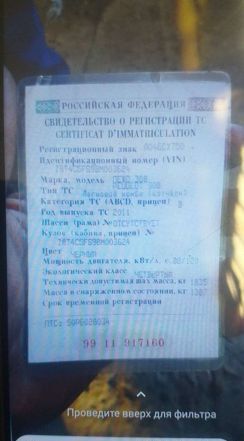 РОССИЙСКАЯ ФЕДЕРАЦИЯ
СВИДЕТЕЛЬСТВО О РЕГИСТРАЦИИ ТС
CERTIFICAT D'IMMATRICULATION
Регистрационный знак
Идентификационный номер (VIN)
Марка, модель ПЕЖО 308
PEUGEOT 308
Тип ТС Легковой комби (хэтчбек)
Категория ТС (ABCD, прицеп) B
Год выпуска ТС 2011
Шасси (рама) № ОТСУТСТВУЕТ
Кузов (кабина, прицеп) №
Цвет ЧЕРНЫЙ
Мощность двигателя, кВт/л. с. 88/120
Экологический класс ЧЕТВЕРТЫЙ
Технически допустимая max масса, кг 1835
Масса в снаряженном состоянии, кг 1307
Срок временной регистрации
99 11 917160
Проведите вверх для фильтра